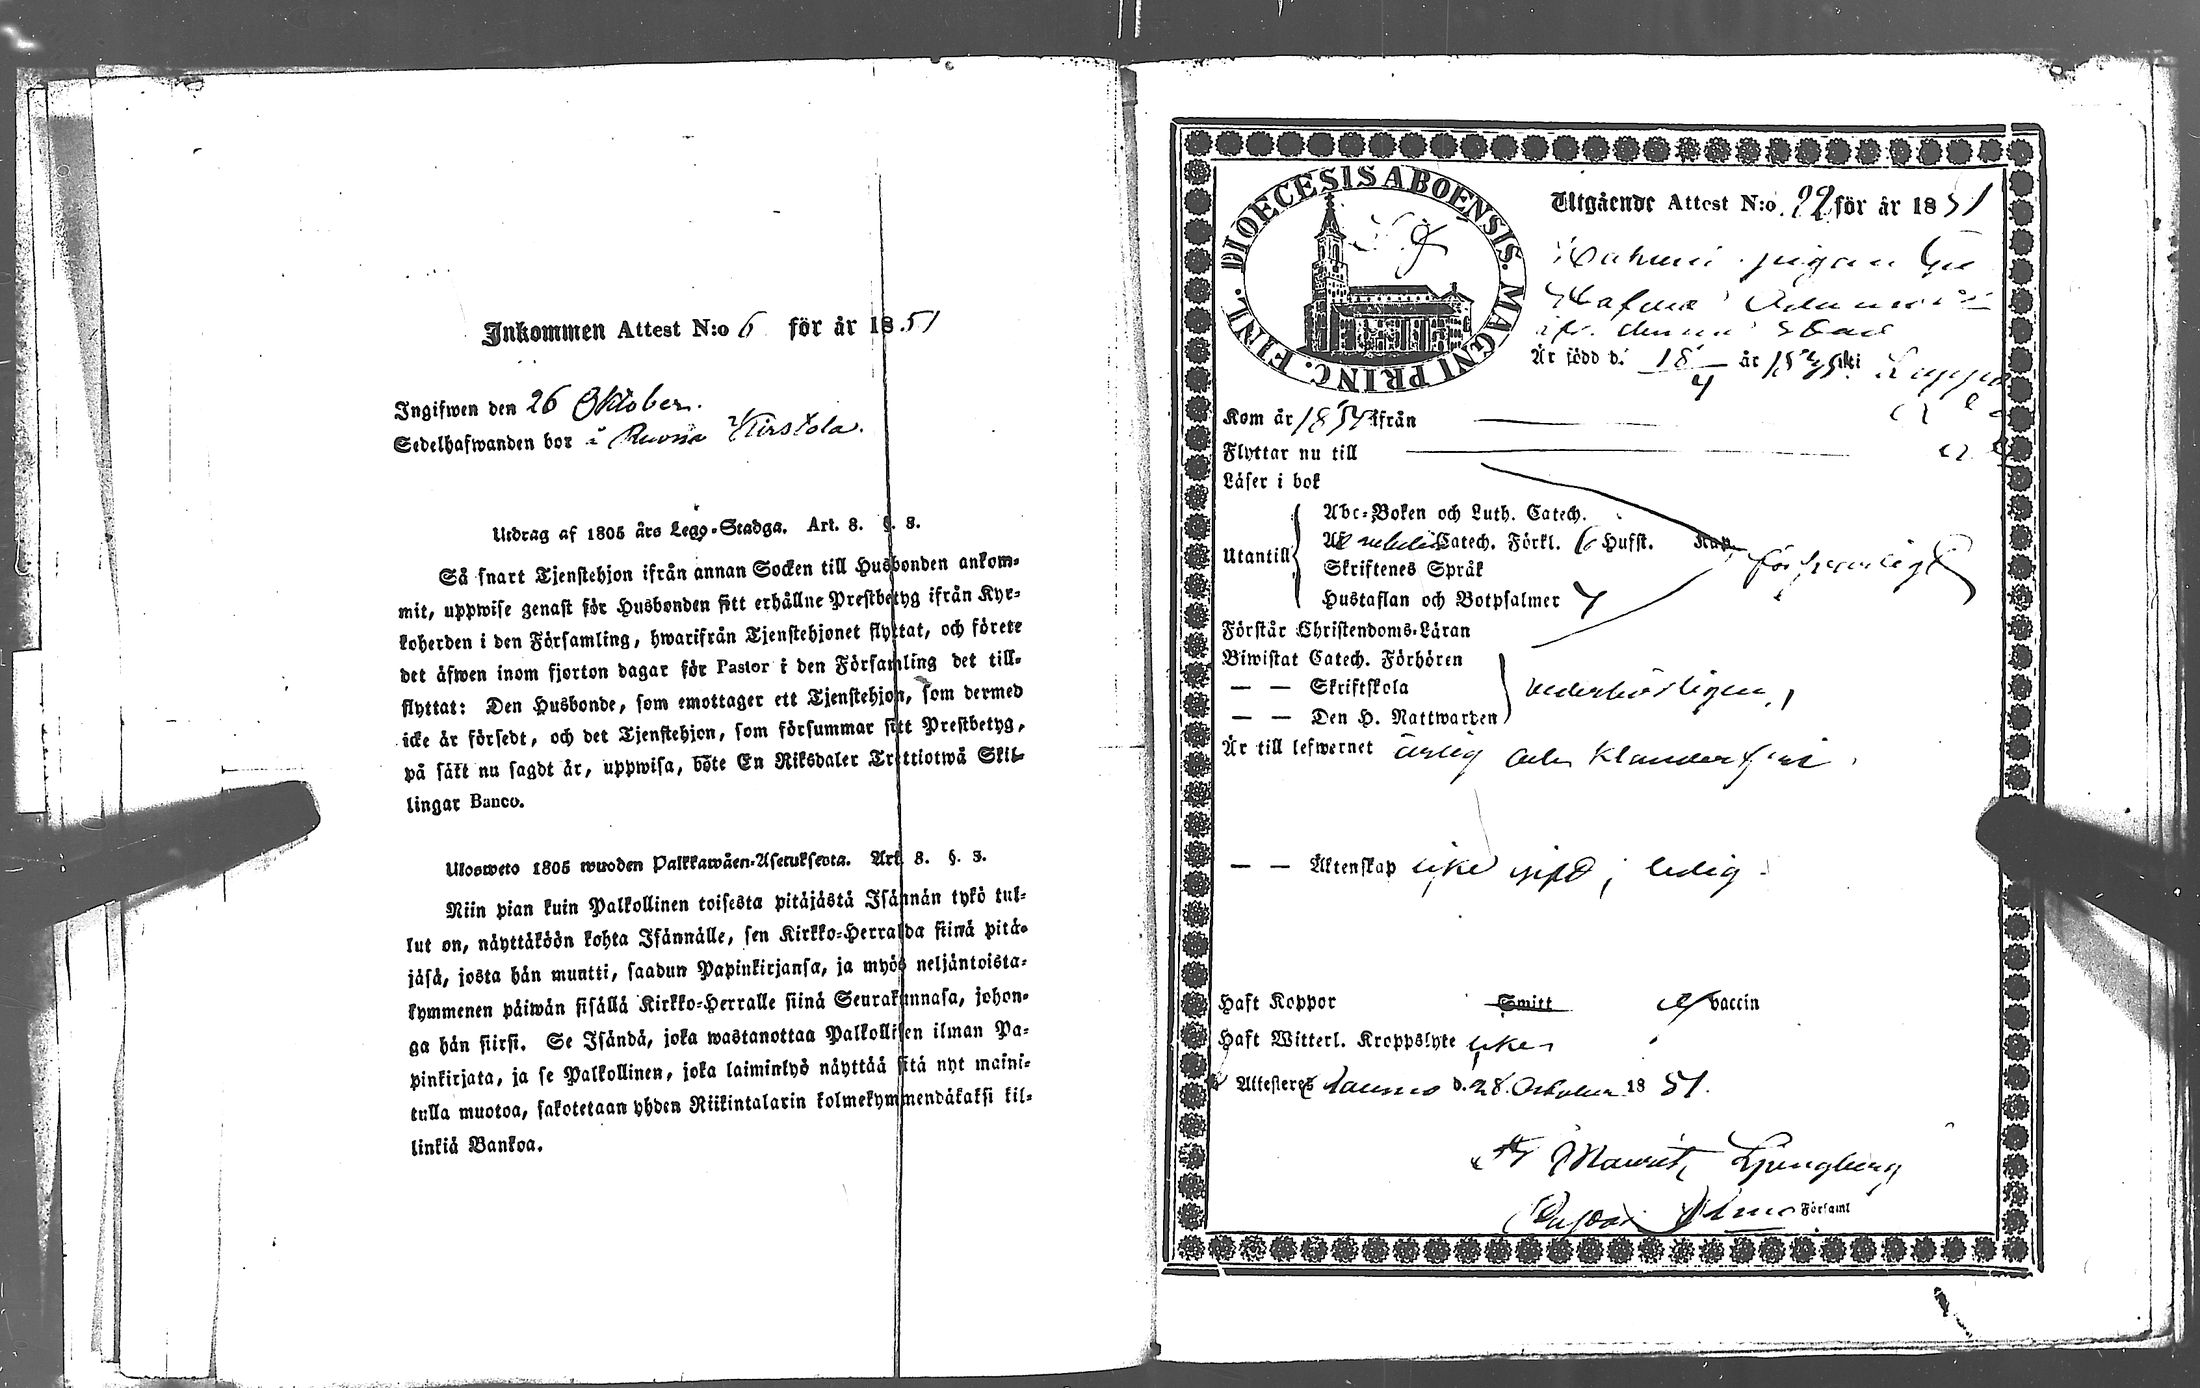 Inkommen Attest N:o 6 för år 1851
Ingifwen den 26 Oktober.
Sedelhafwanden bor i
Utdrag af 1805 års Lego-Stadga. Art. 8. §. 3.
Så snart Tjenstehjon ifrån annan Socken till Husbonden ankom-
mit, uppwise genast för Husbonden sitt erhållne Prestbetyg ifrån Kyr-
koherden i den Församling, hwarifrån Tjenstehjonet flyttat, och förete
det äfwen inom fjorton dagar för Pastor i den Församling det till-
flyttat: Den Husbonde, som emottager ett Tjenstehjon, som dermed
icke är försedt, och det Tjenstehjon, som försummar sitt Prestbetyg,
på sätt nu sagdt är, uppwisa, böte En Riksdaler Trettiotwå Skil-
lingar Banco.
Ulosweto 1805 wuoden Palkkawäen-Asetuksesta. Art. 8. §. 3.
Niin pian kuin Palkollinen toisesta pitäjästä Isännän tykö tul-
lut on, näyttäköön kohta Isännälle, sen Kirkko-Herralda siinä pitä-
jäsä, josta hän muutti, saadun Papinkirjansa, ja myös neljäntoista-
kymmenen päiwän sisällä Kirkko-Herralle siinä Seurakunnasa, johon-
ga hän siirsi. Se Isändä, joka wastanottaa Palkollisen ilman Pa-
pinkirjata, ja se Palkollinen, joka laiminlyö näyttää sitä nyt maini-
tulla muotoa, sakotetaan yhden Riikintalarin kolmekymmendäkaksi kil-
linkiä Bankoa.
DIOECESIS ABOENSIS. MAGNI PRINC. FINL.
Utgående Attest N:o 22 för år 1851
pigan
Är född d. 18/4 år
Kom år ifrån
Flyttar nu till
Läser i bok
Abc-Boken och Luth. Catech.
Utantill Catech. Förkl. 6 Hufst. Kap.
Skriftenes Språk
Hustaflan och Botpsalmer
försvarligt
Förstår Christendoms-Läran
Biwistat Catech. Förhören
— — Skriftskola
wederbörligen
— — Den H. Nattwarden
Är till lefwernet ärlig och klanderfri
— — Äktenskap icke gift, ledig
Haft Koppor Smitt vaccin
Haft Witterl. Kroppslyte icke
Attesteres Raumo d. 28 October 1851.
Mauritz Ljungberg
Församl